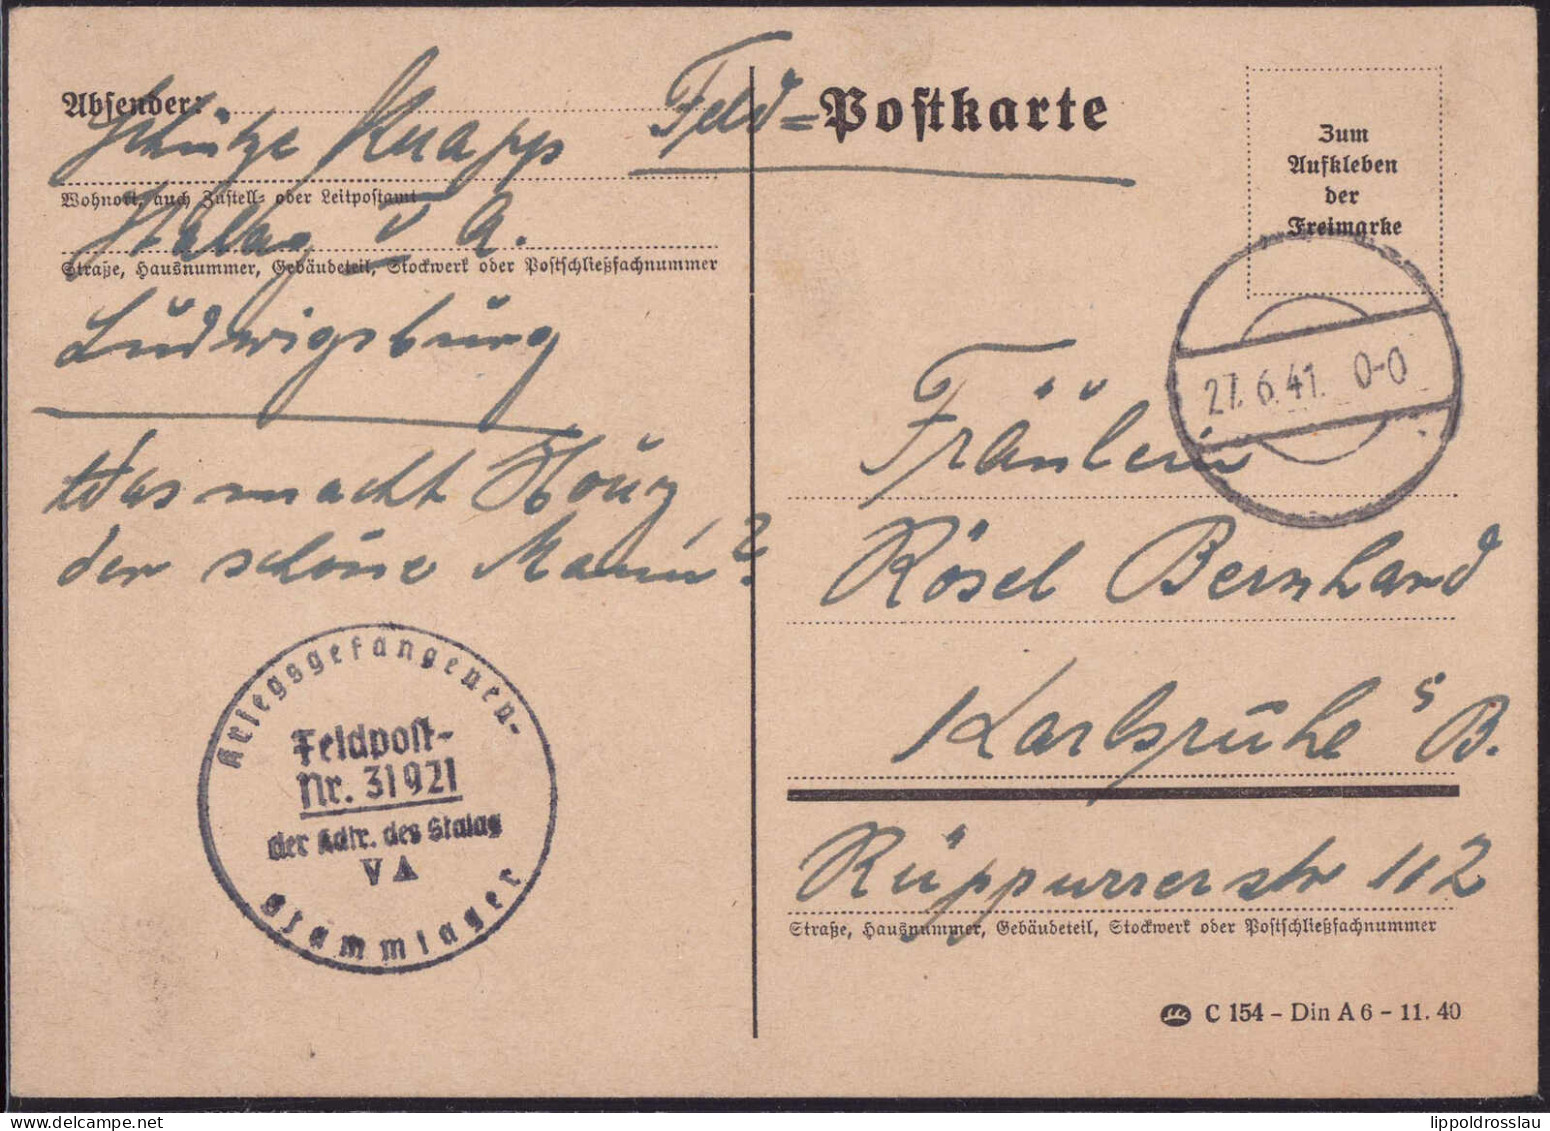 Absender:
Schütze Knapp
Wohnort, auch Zustell- oder Leitpostamt
Stalag V A.
Straße, Hausnummer, Gebäudeteil, Stockwerk oder Postschließfachnummer
Ludwigsburg
Was macht
der schöne Mann?
Kriegsgefangenen-
Feldpost-
Nr. 31921
der Kdtr. des Stalag
V A
Stammlager
Feld=Postkarte
Zum
Aufkleben
der
Freimarke
27.6.41. 0-0
Fräulein
Rösel Bernhard
Karlsruhe i. B.
Rüppurrerstr 112
Straße, Hausnummer, Gebäudeteil, Stockwerk oder Postschließfachnummer
C 154 - Din A 6 - 11. 40
lippoldrosslau